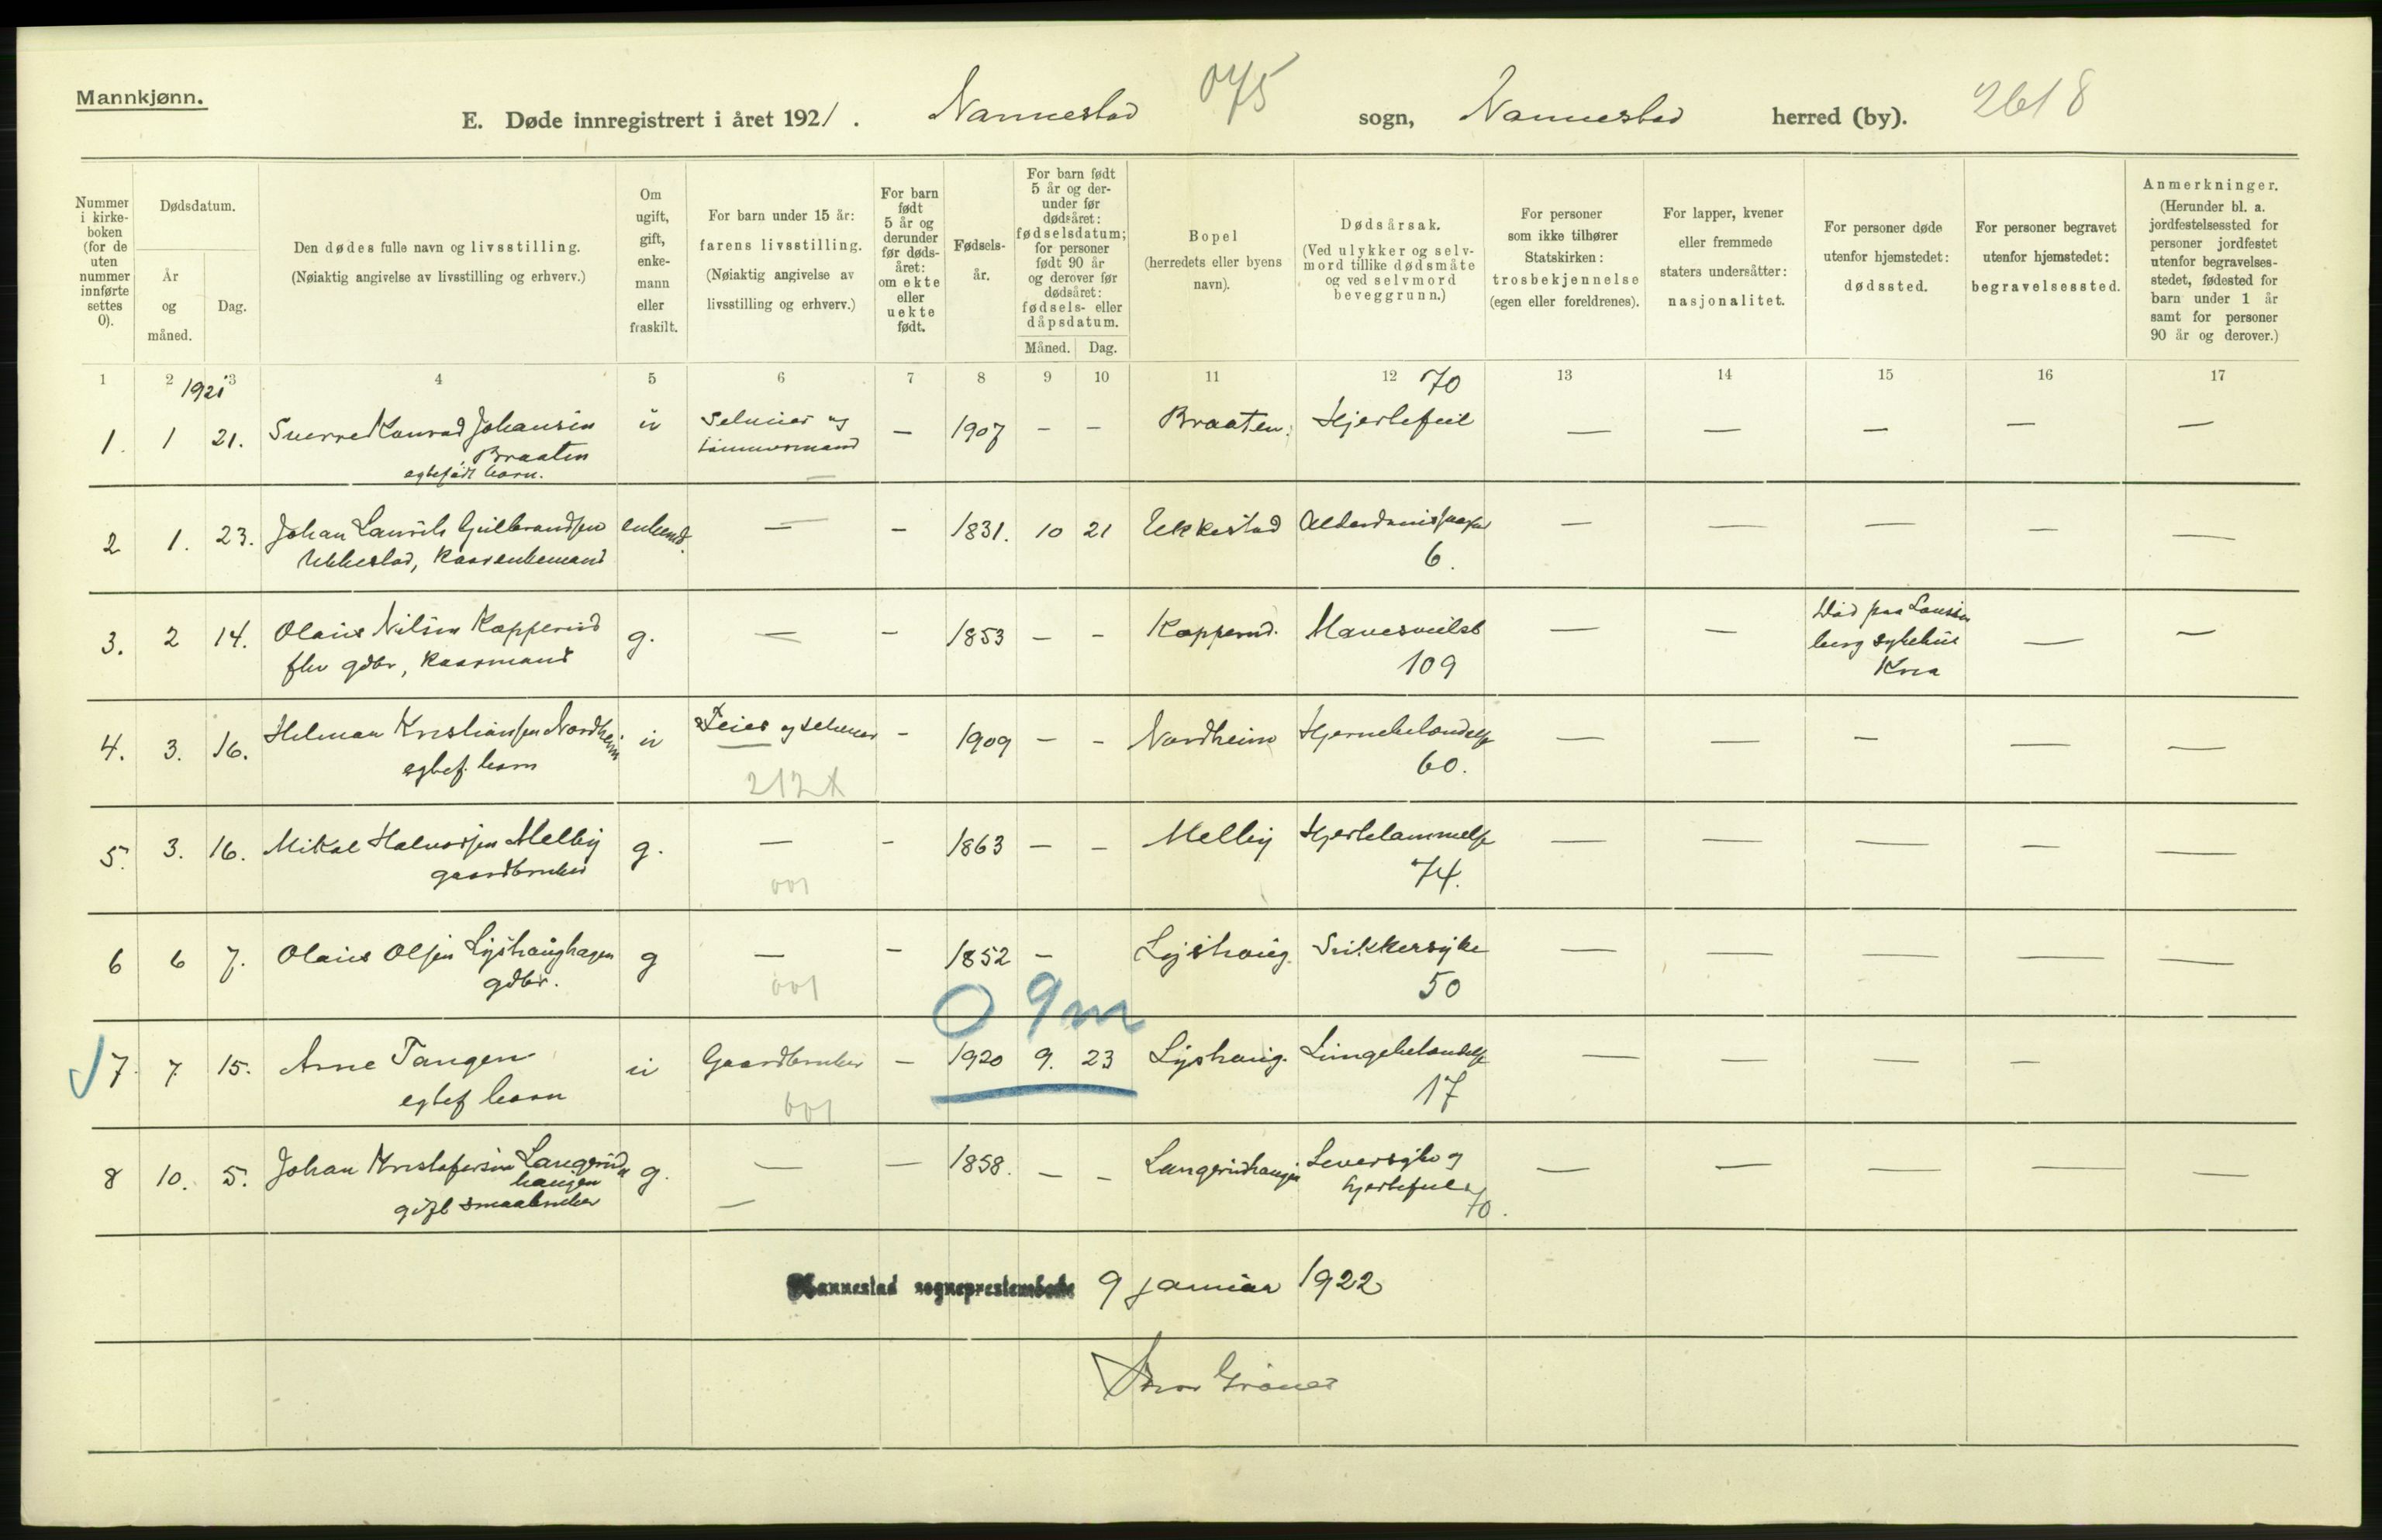 Mannkjønn.
E. Døde innregistrert i året 1921. Nannestad 075 sogn, Nannestad herred (by). 2618
Nummer i kirke-boken (for de uten nummer innførte settes 0).
Dødsdatum.
År og måned.
Dag.
Den dødes fulle navn og livsstilling.
(Nøiaktig angivelse av livsstilling og erhverv.)
Om ugift, gift, enke-mann eller fraskilt.
For barn under 15 år:
farens livsstilling.
(Nøiaktig angivelse av livsstilling og erhverv.)
For barn født 5 år og derunder før døds-året: om ekte eller uekte født.
Fødsels-år.
For barn født 5 år og der-under før dødsåret: fødselsdatum; for personer født 90 år og derover før dødsåret: fødsels- eller dåpsdatum.
Måned. Dag.
Bopel
(herredets eller byens navn).
Dødsårsak.
(Ved ulykker og selv-mord tillike dødsmåte og ved selvmord beveggrunn.)
For personer som ikke tilhører Statskirken: trosbekjennelse (egen eller foreldrenes).
For lapper, kvener eller fremmede staters undersåtter: nasjonalitet.
For personer døde utenfor hjemstedet: dødssted.
For personer begravet utenfor hjemstedet: begravelsessted.
Anmerkninger.
(Herunder bl. a. jordfestelsessted for personer jordfestet utenfor begravelses-stedet, fødested for barn under 1 år samt for personer 90 år og derover.)
1 2 3 4 5 6 7 8 9 10 11 12 13 14 15 16 17
1921 70
1. 1 21. Sverre Konrad Johansen u Selmier og — 1907 — — Braaten. Hjertefeil — — — — —
Braaten tømmermand
egtefødt barn. —
2 1. 23. Johan Laurits Gulbrandsen enkemd. — — 1831. 10 21 Ukkestad — — — — —
Ukkestad, Kaarenkemand 6.
3. 2 14. Olaus Nilsen Kopperud g. — — 1853 — — Kopperud. Mavesvulst — — Død paa — —
flv gdbr, Kaarmand 109 berg sykehus
Kra
4. 3. 16. Hilmar Kristiansen Nordheim u Feier og selmer — 1909 — — Nordheim Hjernebetændelse — — — — —
egtef. barn 212 60.
5. 3. 16. Mikal Halvorsen Melby g. — — 1863 — — Melby Hjertelammelse — — — — —
gaardbruker 001 74.
6 6 7. Olaus Olsen Lyshaughagen g — — 1852 — Lyshaug. Sukkersyke — — — — —
gdbr. 001 50
0 9m
7. 7 15. Arne Tangen u Gaardbruker — 1920 9. 23 Lyshaug. Lungebetændelse — — — —
egtef barn 001 17
8 10. 5. Johan Kristofersen Langerud g. — — 1858. — — Langerudhaugen Leversyke og — — — — —
haugen hjertefeil
smaabruker — 70.
Nannestad sogneprestembede 9 januar 1922